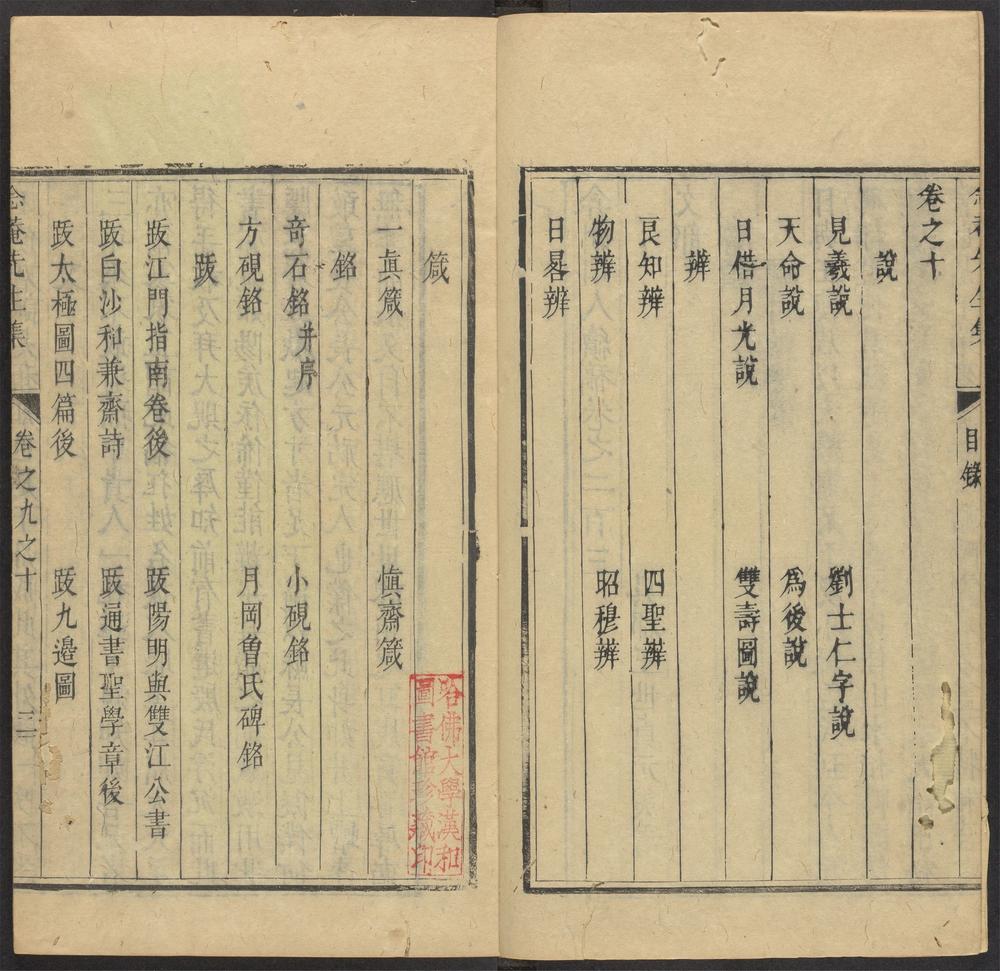 目錄
卷之十
說
見羲說 劉士仁字說
天命說 爲後說
日借月光說 雙壽圖說
辨
良知辨 四聖辨
物辨 昭穆辨
日晷辨
箴
一眞箴 愼齋箴
銘
奇石銘并序 小硯銘
方硯銘 月岡曾氏碑銘
跋
跋江門指南卷後 跋陽明與雙江公書
跋白沙和兼齋詩 跋通書聖學章後
跋太極圖四篇後 跋九邊圖
念菴先生集 卷之九之十
哈佛大學漢和圖書館珍藏印